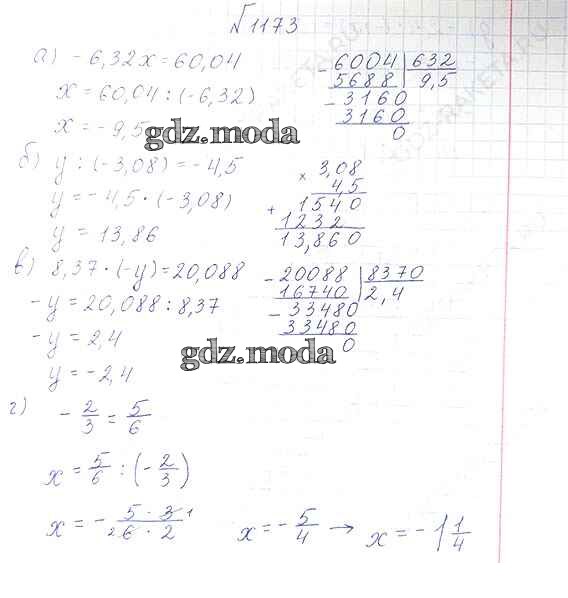 √1173
а) - 6,32x = 60,04
x = 60,04 : (-6,32)
x = - 9,5
- 6004 | 632
5688 | 9,5
- 3160
3160
0
gdz.moda
б) y : (-3,08) = - 4,5
y = - 4,5 · (-3,08)
y = 13,86
× 3,08
4,5
+ 1540
1232
13,860
в) 8,37 · (-y) = 20,088
- y = 20,088 : 8,37
- y = 2,4
y = - 2,4
- 20088 | 8370
16740 | 2,4
- 33480
33480
0
gdz.moda
г) - 2/3 = 5/6
x = 5/6 : (- 2/3)
x = - 5 · 3 1 / 2 6 · 2
x = - 5/4 → x = - 1 1/4